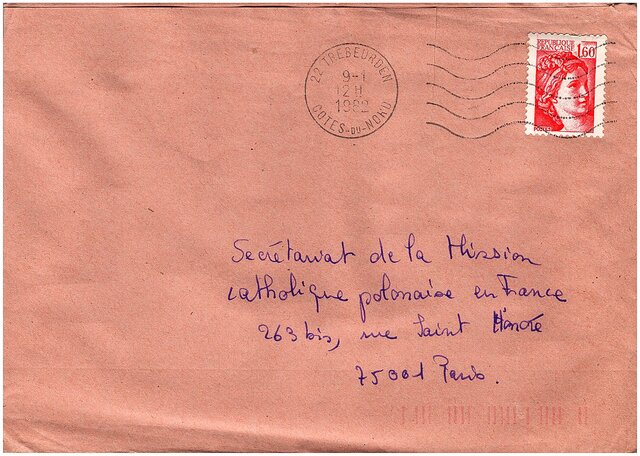 22 TREBEURDEN
9-1
12 H
1982
COTES-DU-NORD
REPUBLIQUE
FRANCAISE
1,60
Secrétariat de la Mission
catholique polonaise en France
263 bis, rue Saint Honoré
75001 Paris.